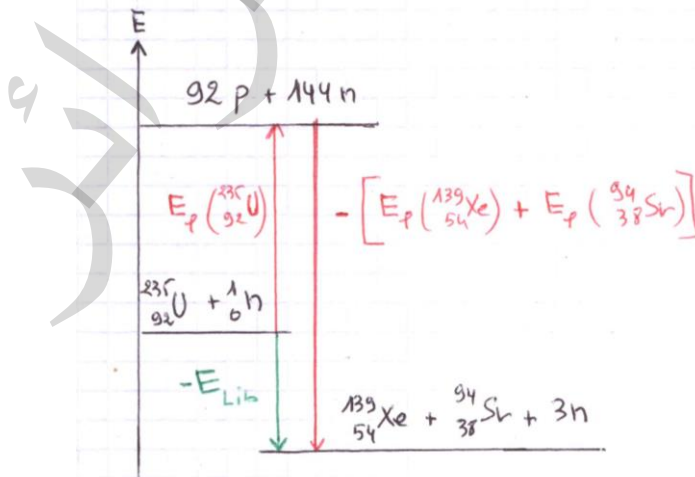 E
92 p + 144 n
E_ℓ(²³⁵₉₂U) - [E_ℓ(¹³⁹₅₄Xe) + E_ℓ(⁹⁴₃₈Sr)]
²³⁵₉₂U + ¹₀n
-E_Lib
¹³⁹₅₄Xe + ⁹⁴₃₈Sr + 3n